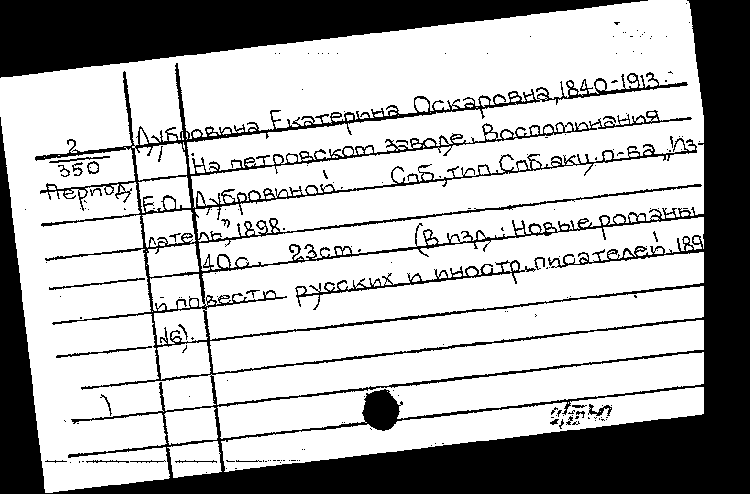 Дубровина, Екатерина Оскаровна, 1840-1913.
2
350
период,
На петровском заводе. Воспоминания
Е.О. Дубровиной. Спб., тип. Спб. акц. о-ва „Из-
датель", 1898.
40 с. 23 см. (В изд.: Новые романы
и повести русских и иностр. писателей. 189
№6).